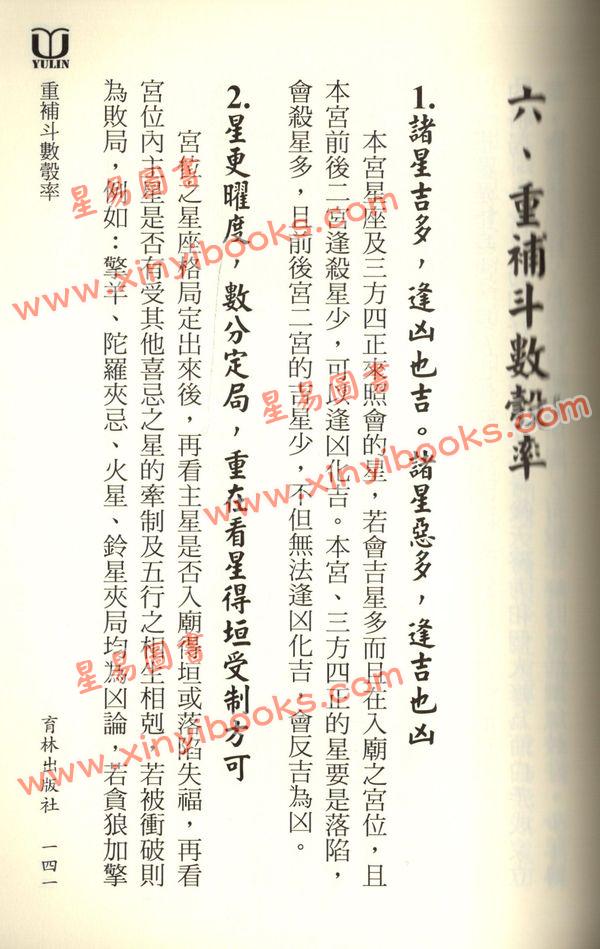 六、重補斗數彀率
1.諸星吉多，逢凶也吉。諸星惡多，逢吉也凶
本宮星座及三方四正來照會的星，若會吉星多而且在入廟之宮位，且
本宮前後二宮逢殺星少，可以逢凶化吉。本宮、三方四正的星要是落陷，
會殺星多，且前後宮二宮的吉星少，不但無法逢凶化吉，會反吉為凶。
2.星更曜度，數分定局，重在看星得垣受制方可
宮位之星座格局定出來後，再看主星是否入廟得垣或落陷失福，再看
宮位內主星是否有受其他喜忌之星的牽制及五行之相生相剋，若被衝破則
為敗局，例如：擎羊、陀羅夾忌、火星、鈴星夾局均為凶論，若貪狼加擎
YULIN
重補斗數彀率
育林出版社 一四一
星易圖書
www.xinyibooks.com
星易圖書
www.xinyibooks.com
星易圖書
www.xinyibooks.com